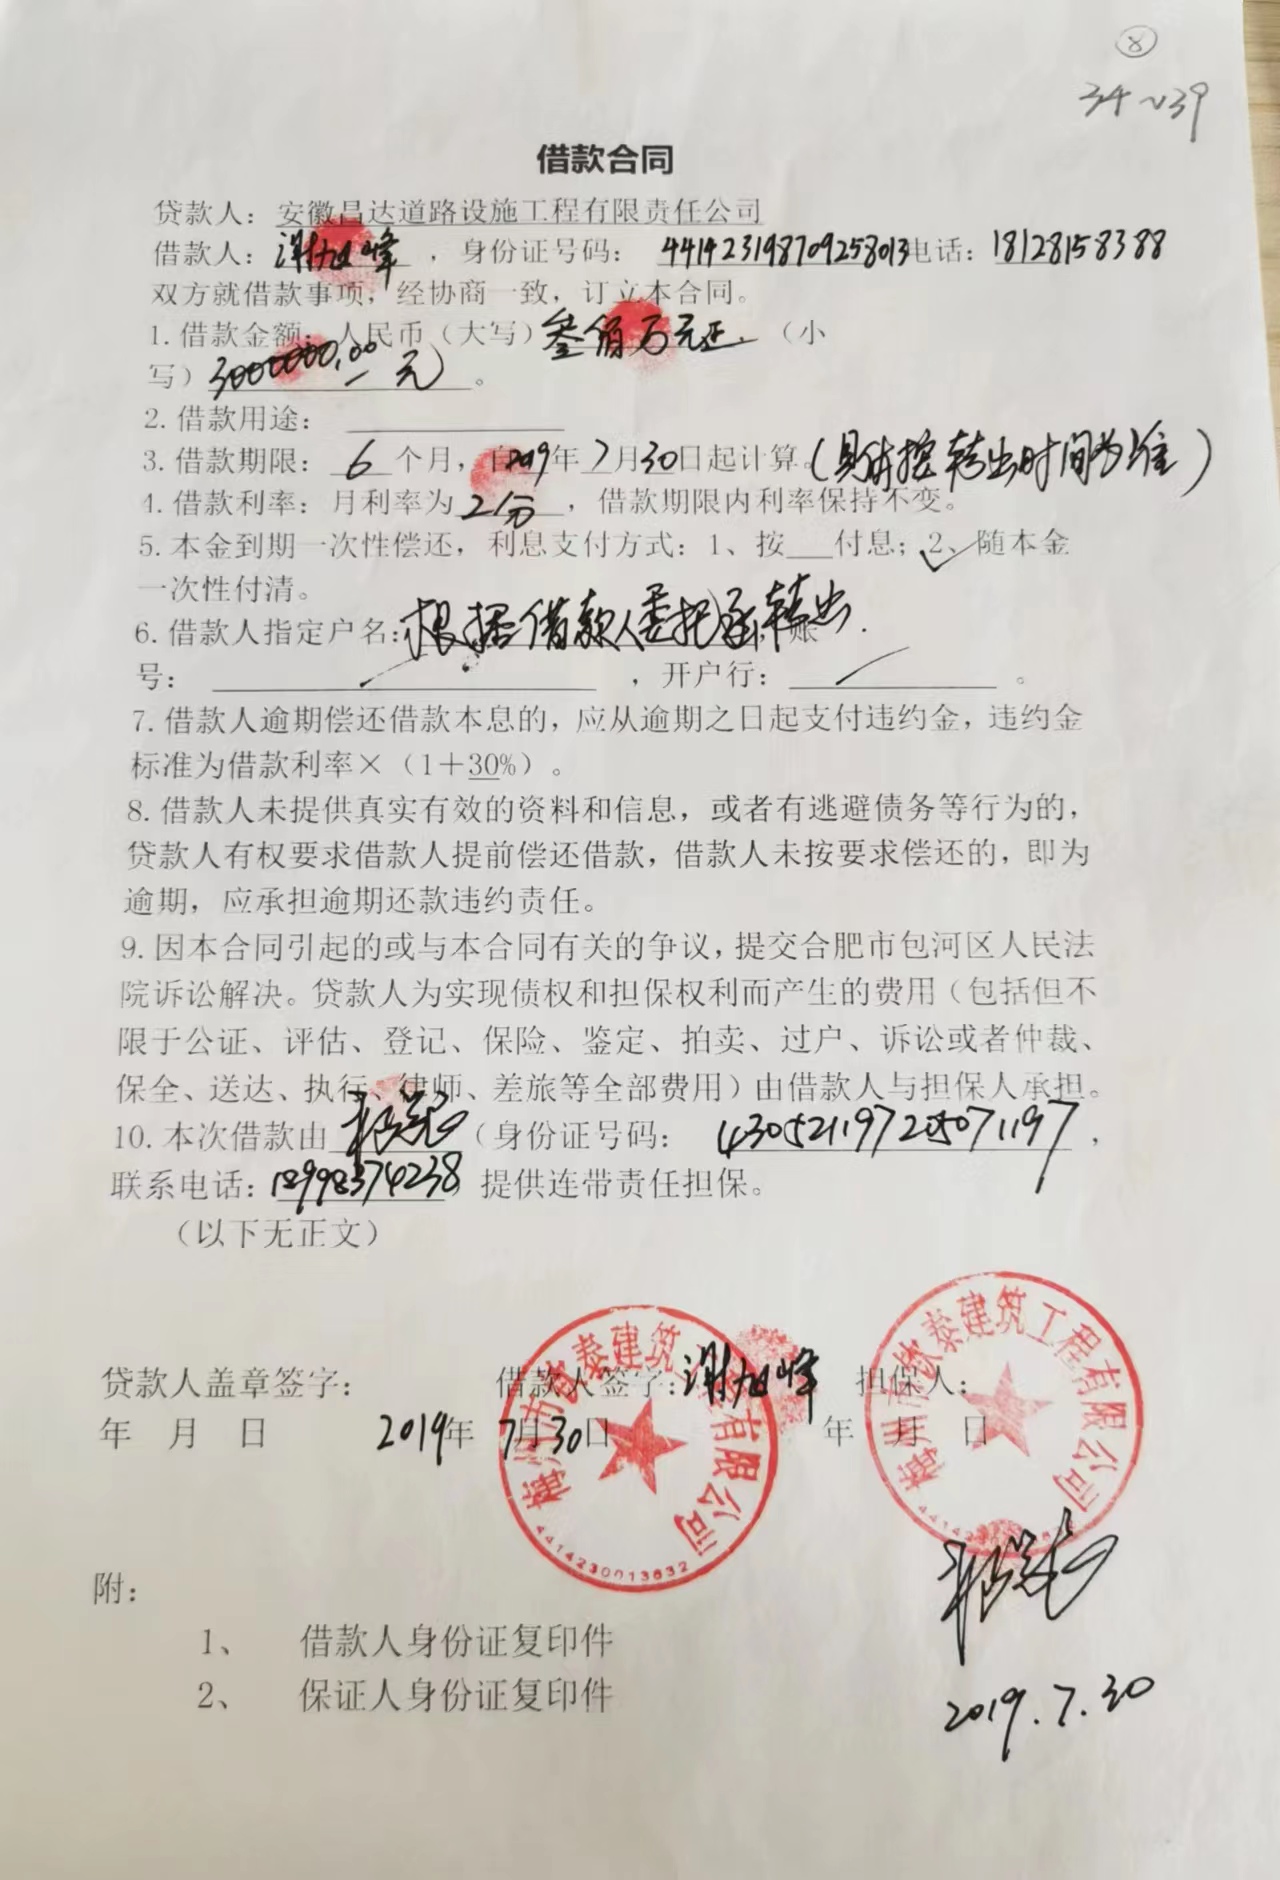 ⑧
34~39
借款合同
贷款人：安徽昌达道路设施工程有限责任公司
借款人：谢旭峰，身份证号码：441423198709258013电话：18128158388
双方就借款事项，经协商一致，订立本合同。
1.借款金额：人民币（大写）叁佰万元正.（小
写）3000000.00元）。
2.借款用途：
3.借款期限：6个月，自2019年7月30日起计算。(具体按转出时间为准)
4.借款利率：月利率为2分，借款期限内利率保持不变。
5.本金到期一次性偿还，利息支付方式：1、按___付息；2、✓随本金
一次性付清。
6.借款人指定户名：根据借款人委托转出，账
号：／，开户行：／。
7.借款人逾期偿还借款本息的，应从逾期之日起支付违约金，违约金
标准为借款利率×（1＋30%）。
8.借款人未提供真实有效的资料和信息，或者有逃避债务等行为的，
贷款人有权要求借款人提前偿还借款，借款人未按要求偿还的，即为
逾期，应承担逾期还款违约责任。
9.因本合同引起的或与本合同有关的争议，提交合肥市包河区人民法
院诉讼解决。贷款人为实现债权和担保权利而产生的费用（包括但不
限于公证、评估、登记、保险、鉴定、拍卖、过户、诉讼或者仲裁、
保全、送达、执行、律师、差旅等全部费用）由借款人与担保人承担。
10.本次借款由（身份证号码：430521197205071197，
联系电话：18998374238 提供连带责任担保。
（以下无正文）
贷款人盖章签字： 借款人签字：谢旭峰 担保人：
年 月 日 2019年7月30日 年 月 日
梅州市钦泰建筑工程有限公司
4414230013632
梅州市钦泰建筑工程有限公司
附：
1、 借款人身份证复印件
2、 保证人身份证复印件
2019.7.30